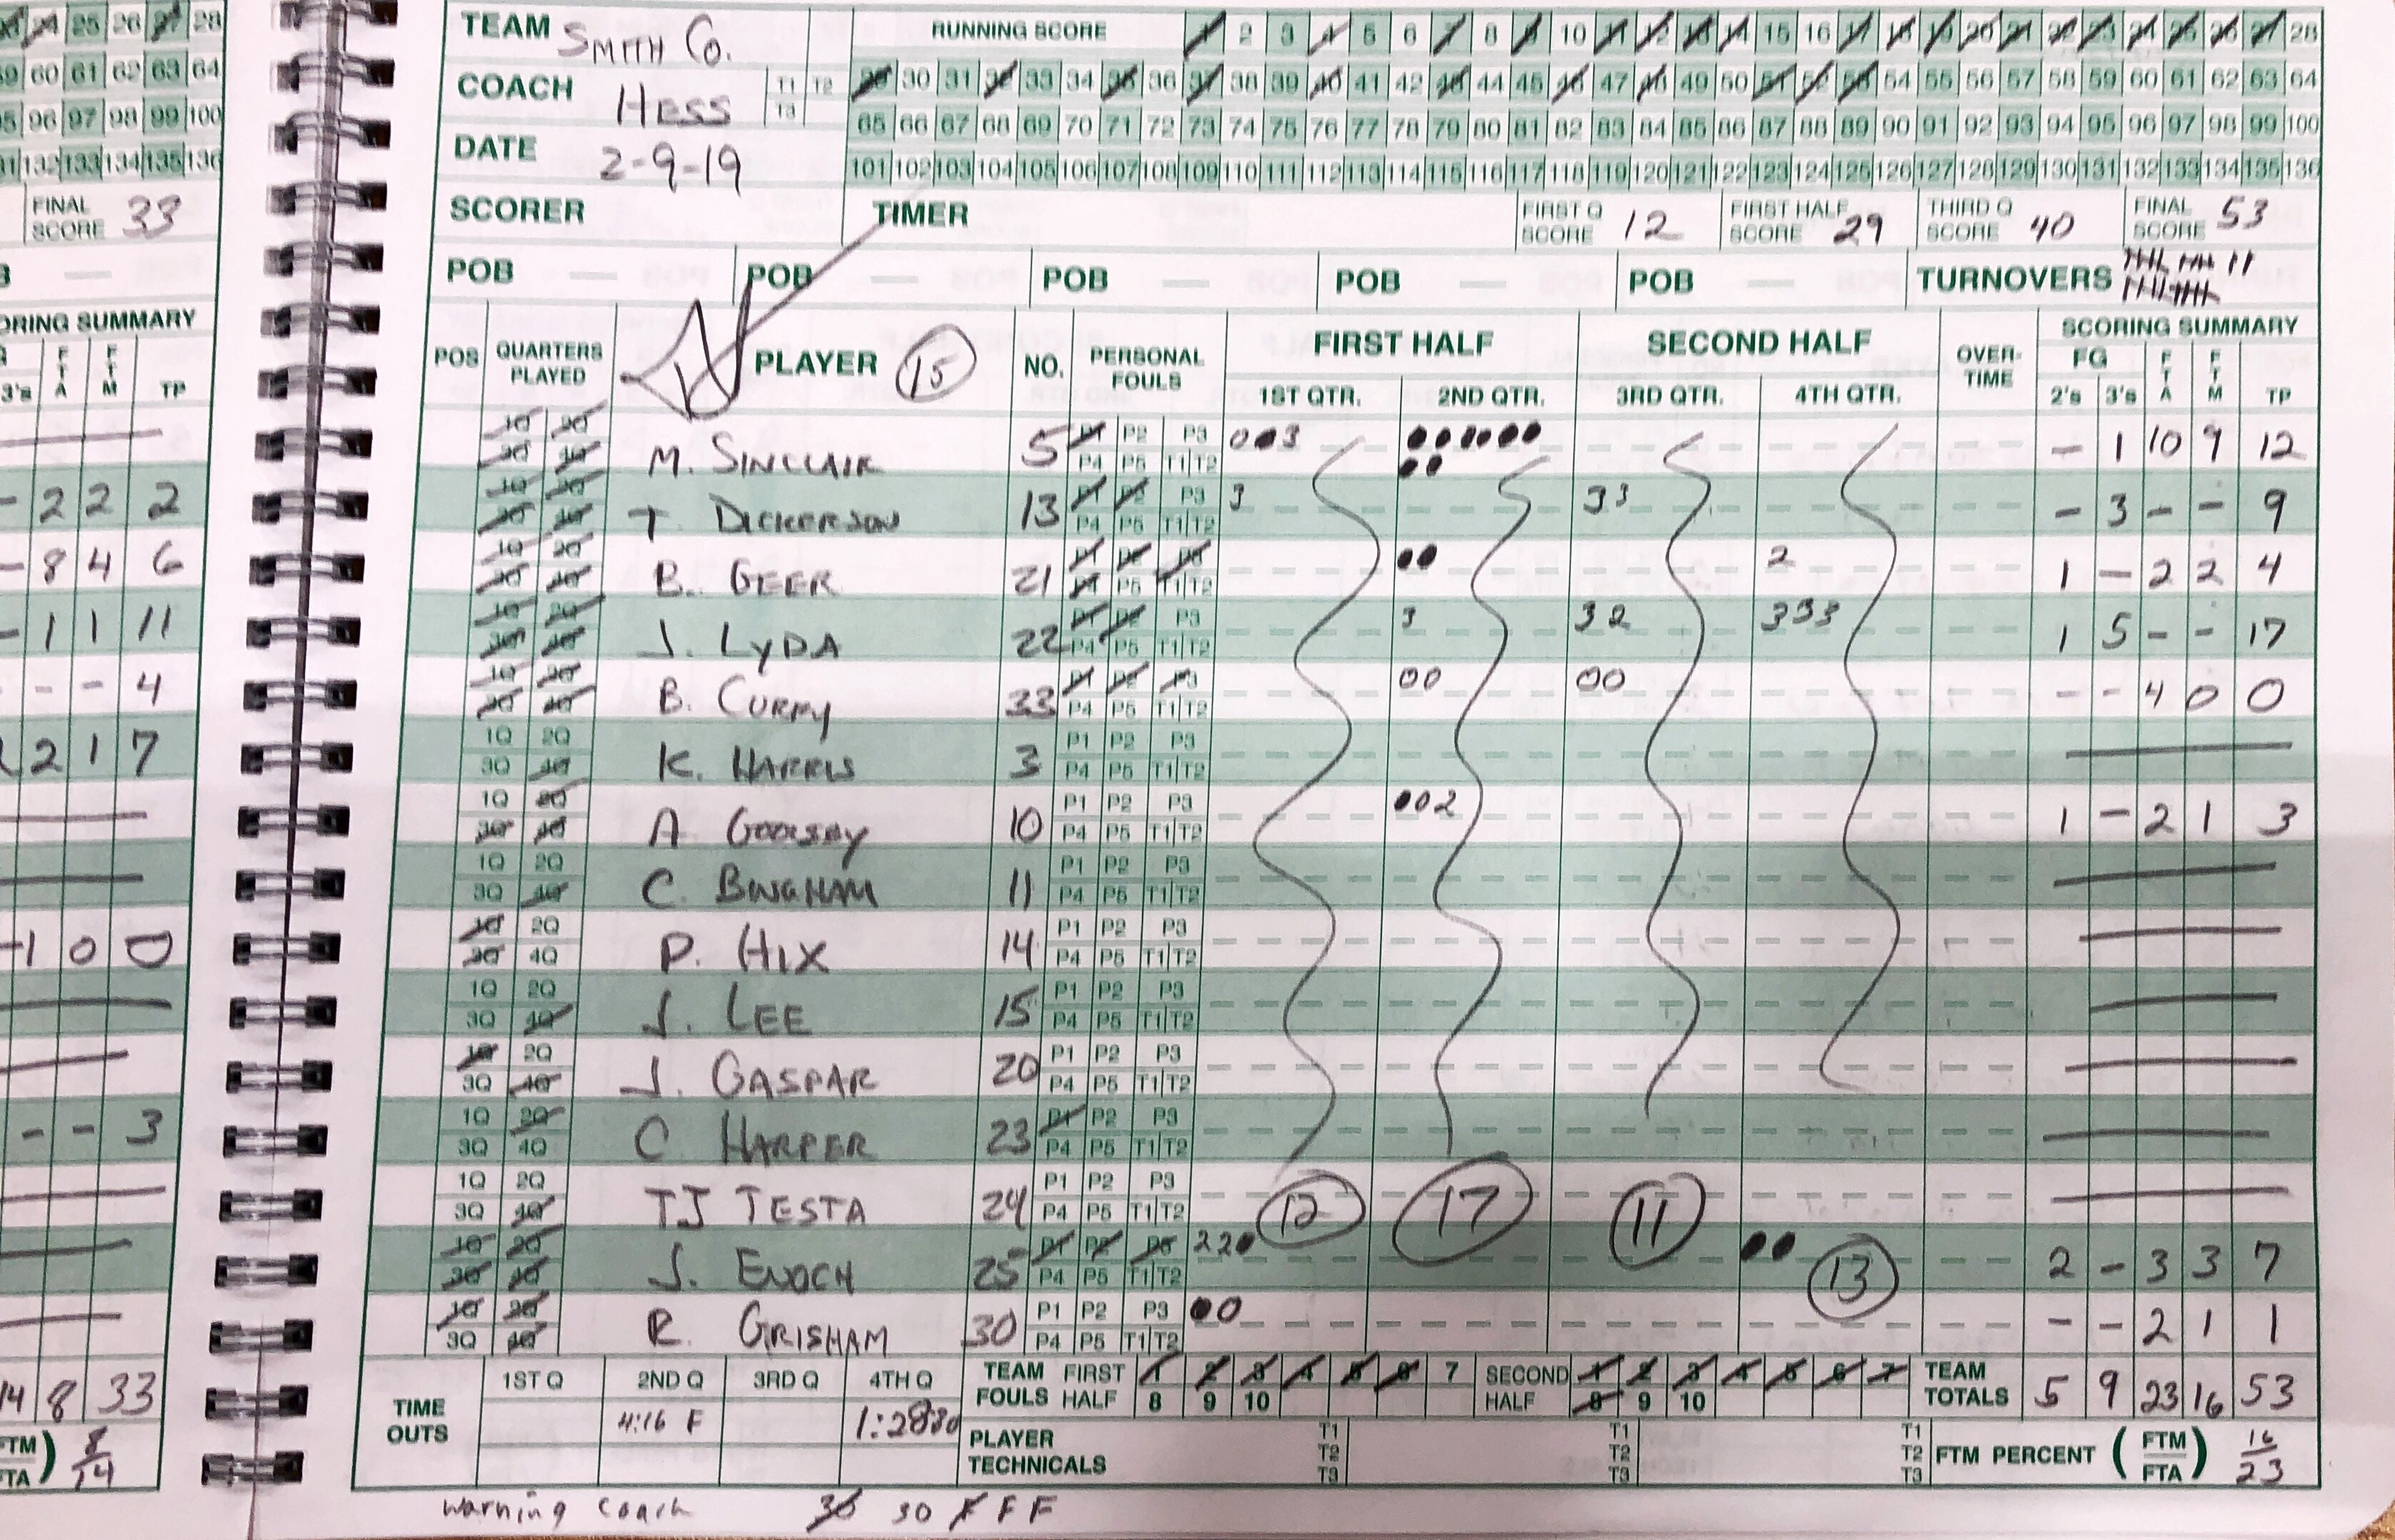 TEAM SMITH CO. RUNNING SCORE 1 2 3 4 5 6 7 8 9 10 11 12 13 14 15 16 17 18 19 20 21 22 23 24 25 26 27 28
COACH HESS T1 T2 T3 29 30 31 32 33 34 35 36 37 38 39 40 41 42 43 44 45 46 47 48 49 50 51 52 53 54 55 56 57 58 59 60 61 62 63 64
65 66 67 68 69 70 71 72 73 74 75 76 77 78 79 80 81 82 83 84 85 86 87 88 89 90 91 92 93 94 95 96 97 98 99 100
DATE 2-9-19 101 102 103 104 105 106 107 108 109 110 111 112 113 114 115 116 117 118 119 120 121 122 123 124 125 126 127 128 129 130 131 132 133 134 135 136
SCORER TIMER FIRST Q SCORE 12 FIRST HALF SCORE 29 THIRD Q SCORE 40 FINAL SCORE 53
POB — POB — POB — POB — POB — TURNOVERS
POS QUARTERS PLAYED PLAYER 15 NO. PERSONAL FOULS FIRST HALF SECOND HALF OVER-TIME SCORING SUMMARY
1ST QTR. 2ND QTR. 3RD QTR. 4TH QTR. FG 2's 3's FTA FTM TP
1Q 2Q 3Q 4Q M. SINCLAIR 5 P1 P2 P3 P4 P5 T1 T2 0●3 - 1 10 9 12
1Q 2Q 3Q 4Q T. DICKERSON 13 P1 P2 P3 P4 P5 T1 T2 3 33 - 3 - - 9
1Q 2Q 3Q 4Q B. GEER 21 P1 P2 P3 P4 P5 T1 T2 ●● 2 1 - 2 2 4
1Q 2Q 3Q 4Q J. LYDA 22 P1 P2 P3 P4 P5 T1 T2 3 32 333 1 5 - - 17
1Q 2Q 3Q 4Q B. CURRY 33 P1 P2 P3 P4 P5 T1 T2 00 00 - - 4 0 0
1Q 2Q 3Q 4Q K. HARRIS 3 P1 P2 P3 P4 P5 T1 T2
1Q 2Q 3Q 4Q A GOOLSBY 10 P1 P2 P3 P4 P5 T1 T2 ●02 1 - 2 1 3
1Q 2Q 3Q 4Q C. BINGHAM 11 P1 P2 P3 P4 P5 T1 T2
1Q 2Q 3Q 4Q P. HIX 14 P1 P2 P3 P4 P5 T1 T2
1Q 2Q 3Q 4Q J. LEE 15 P1 P2 P3 P4 P5 T1 T2
1Q 2Q 3Q 4Q J. GASPAR 20 P1 P2 P3 P4 P5 T1 T2
1Q 2Q 3Q 4Q C HARPER 23 P1 P2 P3 P4 P5 T1 T2
1Q 2Q 3Q 4Q TJ TESTA 24 P1 P2 P3 P4 P5 T1 T2 12 17 11
1Q 2Q 3Q 4Q J. ENOCH 25 P1 P2 P3 P4 P5 T1 T2 22● ●● 13 2 - 3 3 7
1Q 2Q 3Q 4Q R. GRISHAM 30 P1 P2 P3 P4 P5 T1 T2 ●0 - - 2 1 1
TIME OUTS 1ST Q 2ND Q 3RD Q 4TH Q TEAM FOULS FIRST HALF 1 2 3 4 5 6 7 8 9 10 SECOND HALF 1 2 3 4 5 6 7 8 9 10 TEAM TOTALS 5 9 23 16 53
4:16 F PLAYER TECHNICALS T1 T2 T3 T1 T2 T3 T1 T2 T3 FTM PERCENT (FTM/FTA) 16/23
warning coach 30 30 F F F
24 25 26 27 28
59 60 61 62 63 64
95 96 97 98 99 100
132 133 134 135 136
FINAL SCORE 33
3's FTA FTM TP
- 2 2 2
- 8 4 6
- 1 1 11
- - - 4
2 1 7
- 1 0 0
- - 3
14 8 33
FTM/FTA) 8/14